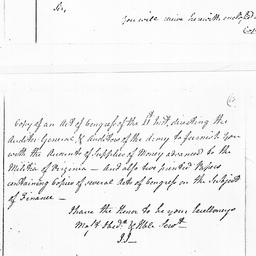 Sir,
You will receive herewith enclosed a
Copy of an Act of Congress of the 11th Inst. directing the
Auditor General, & Auditors of the Army to furnish You
with the Accounts of Supplies & Money advanced to the
Militia of Virginia — And also two printed Papers
containing Copies of several Acts of Congress on the Subject
of Finance —
I have the Honor to be your Excellency's
Most Obedt. & Hble Servt.